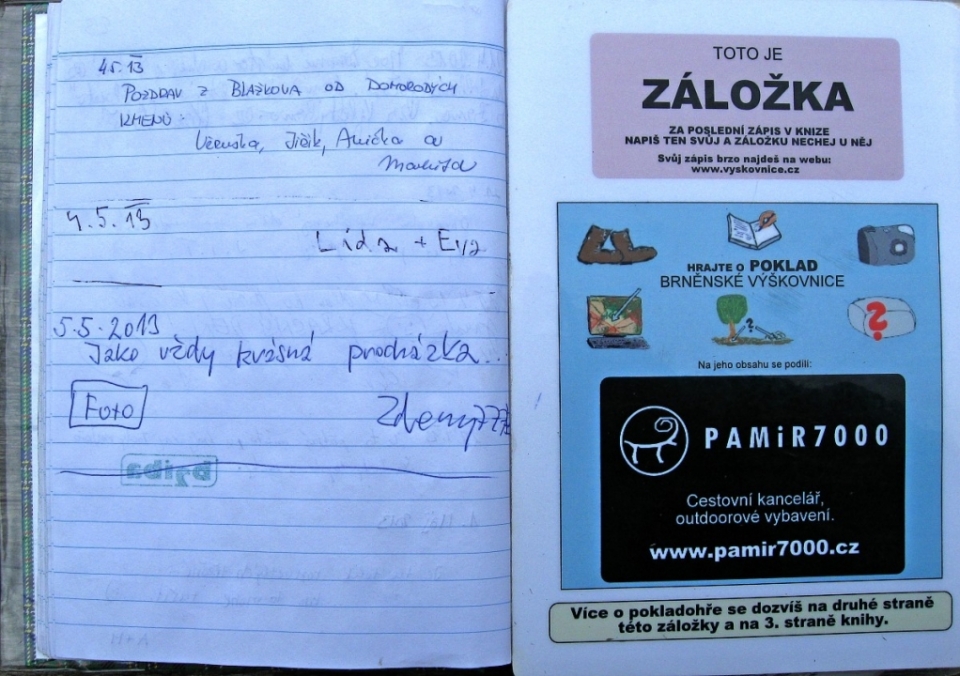 4.5. 13
POZDRAV Z BLAŽKOVA OD DOMORODÝCH
KMENŮ:
Verunka, Jiřík, Anička a
Markéta
4.5.13
Lída + Eva
5.5.2013
Jako vždy krásná procházka...
Foto
bajba
TOTO JE
ZÁLOŽKA
ZA POSLEDNÍ ZÁPIS V KNIZE
NAPIŠ TEN SVŮJ A ZÁLOŽKU NECHEJ U NĚJ
Svůj zápis brzo najdeš na webu:
www.vyskovnice.cz
HRAJTE O POKLAD
BRNĚNSKÉ VÝŠKOVNICE
?
?
Na jeho obsahu se podílí:
PAMiR7000
Cestovní kancelář,
outdoorové vybavení.
www.pamir7000.cz
Více o pokladohře se dozvíš na druhé straně
této záložky a na 3. straně knihy.